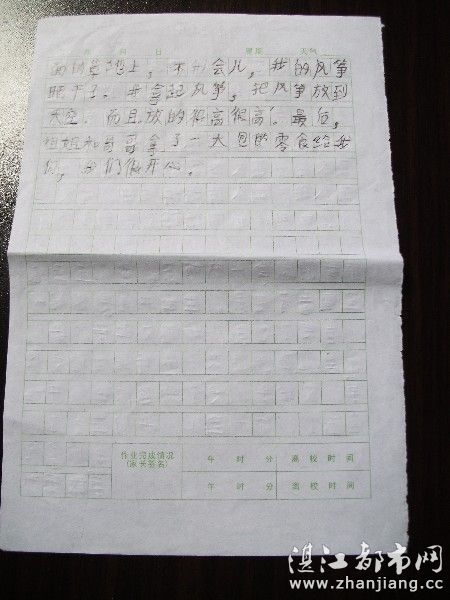 月 日 星期 天气
面的草地上，不一会儿，我的风筝
晒干了。我拿起风筝，把风筝放到
天空。而且放的很高很高。最后，
姐姐和哥哥拿了一大包的零食给我
们，我们很开心。
作业完成情况 午 时 分 离校时间
(家长签名) 午 时 分 离校时间
湛江都市网
www.zhanjiang.cc